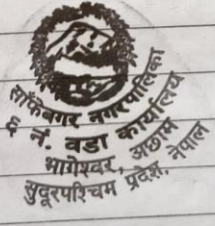 साँफेबगर नगरपालिका
नं. वडा कार्यालय
भागेश्वर, अछाम
सुदूरपश्चिम प्रदेश, नेपाल